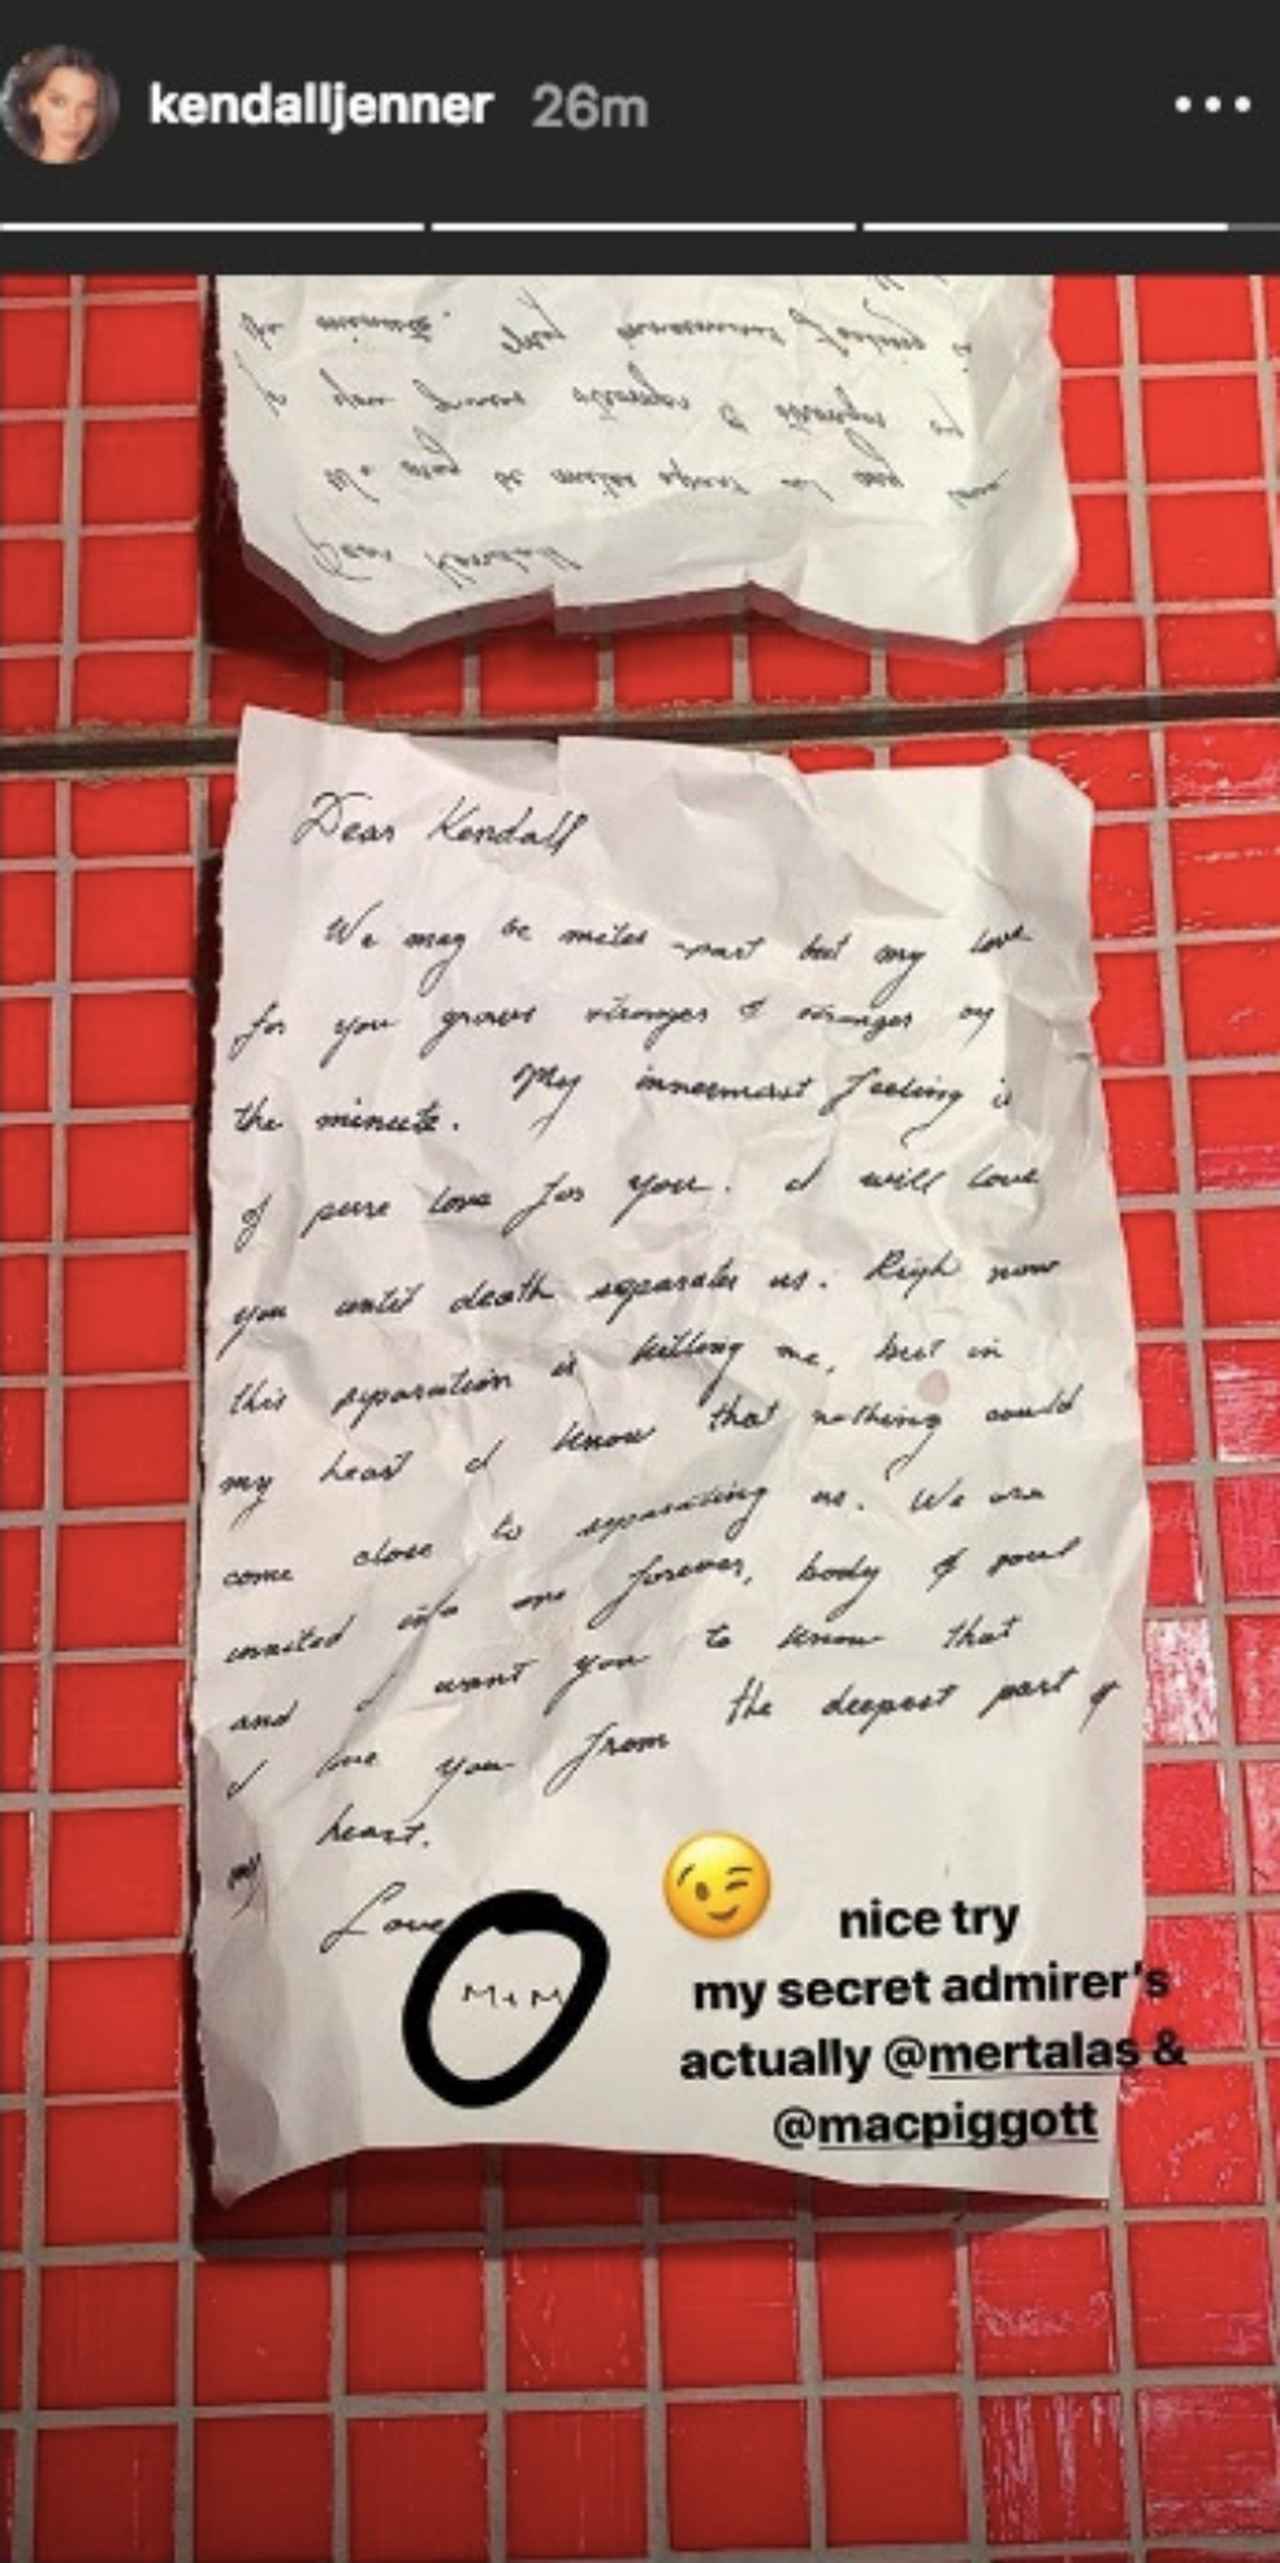 kendalljenner 26m
the minute. My innermost feeling is
for you grows stronger & stronger by
We may be miles apart but my love
Dear Kendall
Dear Kendall
We may be miles apart but my love
for you grows stronger & stronger by
the minute. My innermost feeling is
of pure love for you. I will love
you until death separates us. Righ now
this separation is killing me, but in
my heart I know that nothing could
come close to separating us. We are
united into one forever, body & soul
and I want you to know that
I love you from the deepest part of
my heart.
Love
M+M
nice try
my secret admirer's
actually @mertalas &
@macpiggott